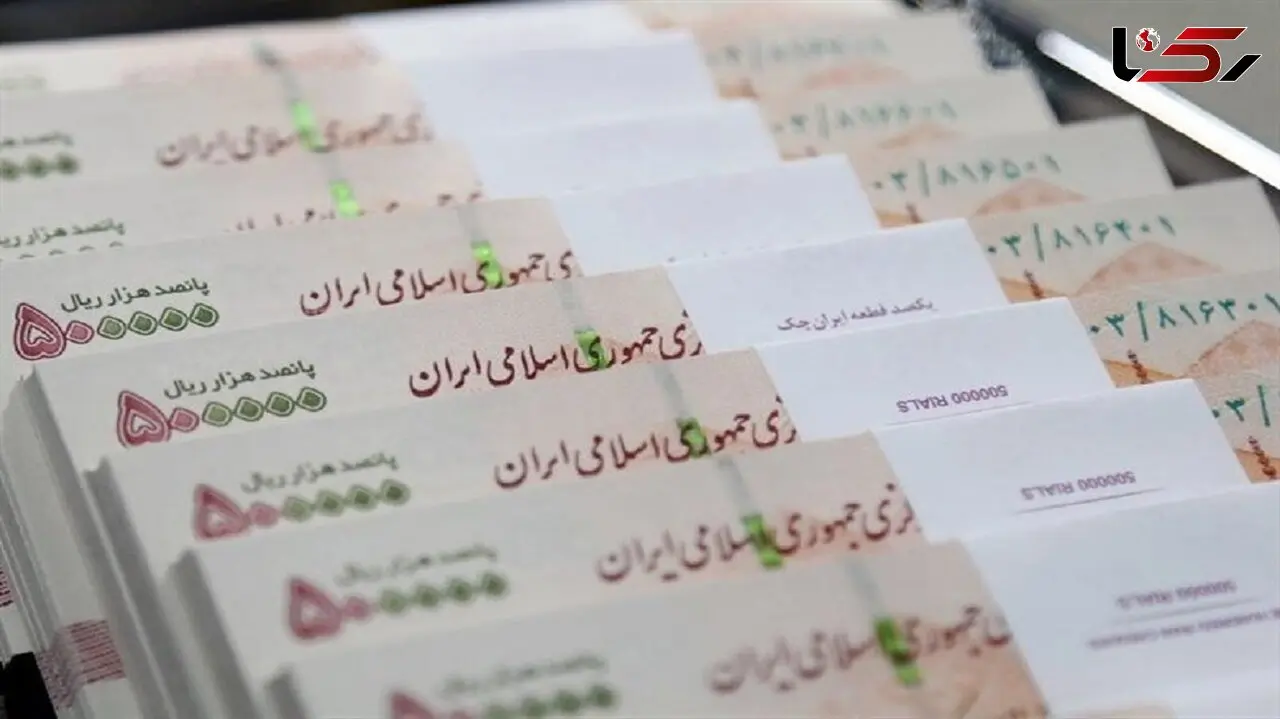 رکنا
پانصد هزار ریال
جمهوری اسلامی ایران
۰۳/۸۱۶۶۰۱
پانصد هزار ریال
۰۳/۸۱۶۵۰۱
پانصد هزار ریال
۵۰۰۰۰۰
جمهوری اسلامی ایران
۰۳/۸۱۶۴۰۱
یکصد قطعه ایران چک
پانصد هزار ریال
۵۰۰۰۰۰
جمهوری اسلامی ایران
۰۳/۸۱۶۳۰۱
500000 RIALS
پانصد هزار ریال
۵۰۰۰۰۰
جمهوری اسلامی ایران
۰۳/
500000 RIALS
پانصد هزار ریال
۵۰۰۰۰۰
جمهوری اسلامی ایران
500000 RIALS
جمهوری اسلامی ایران